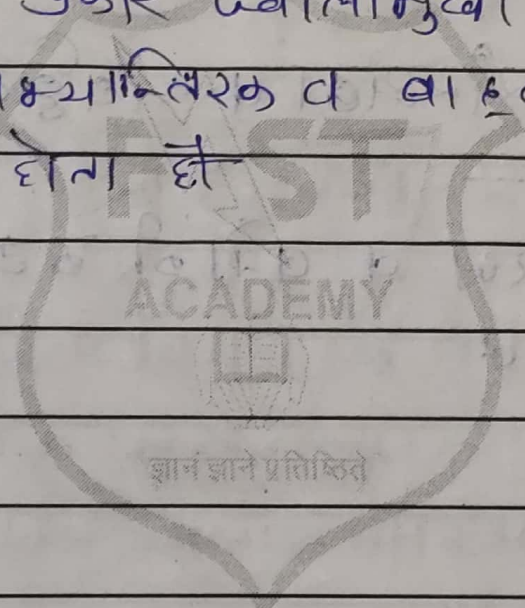 ज्वालामुखी
भ्यान्तिरक व बाह
होता है
FST
ACADEMY
ज्ञानं ज्ञाने प्रतिष्ठिते